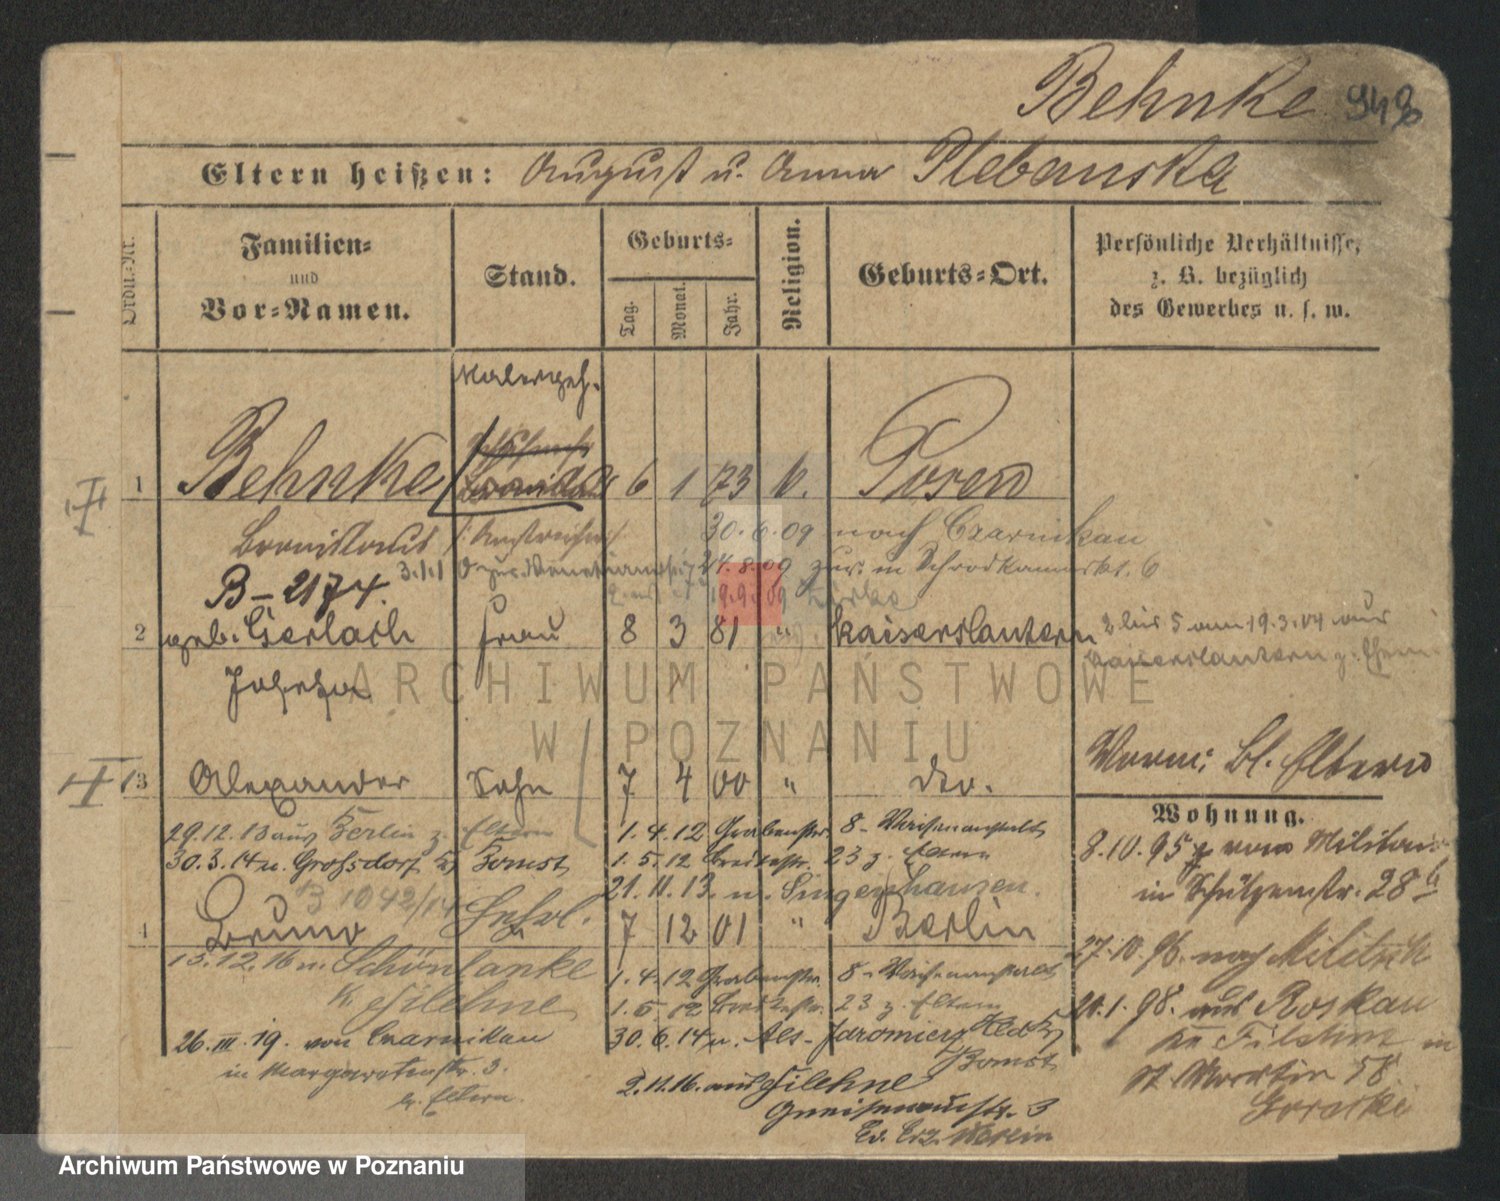 Behnke 948
Eltern heißen: August u. Anna Plebanska
Ordn.-Nr.
Familien-
und
Vor-Namen.
Stand.
Geburts-
Tag.
Monat.
Jahr.
Religion.
Geburts-Ort.
Persönliche Verhältnisse,
z. B. bezüglich
des Gewerbes u. s. w.
Malergeh.
1 Behnke 6 1 73 k. Posen
Bronislaus
30.6.09 nach Czarnikau
24.8.09 zur. in Schrodkamarkt. 6
B-2174.
19.9.09
2 geb. Gerlach Frau 8 3 81 " Kaiserslautern
Josefa
2 bis 5 am 19.3.04 aus
Kaiserslautern z.
ARCHIWUM PAŃSTWOWE
W POZNANIU
Vorm: bl. Eltern
3 Alexander Sohn 7 4 00 " do.
Wohnung.
29.12.13 aus Berlin z. Eltern
1.4.12 Grabenstr. 8 - Waisenanstalt
8.10.95 vom Militär
30.3.14 n. Grossdorf Kr Bomst
1.5.12 Breitestr. 23 z. Eltern
in Schützenstr. 28
21.11.13. n. Singershausen.
B 1042/14
4 Bruno 7 12 01 " Berlin
27.10.96. nach
15.12.16 n. Schönlanke
1.4.12 Grabenstr. 8 - Waisenanstalt
K. Filehne
1.5.12 Breitestr. 23 z. Eltern
21.1.98. aus Roskau
Kr Filehne in
26.III.19. von Czarnikau
30.6.14 n. Als-Jaromierz Kr
Bomst
in Margaretenstr. 3.
St Martin 58
z. Eltern.
2.11.16. aus Filehne
Gneisenaustr. 3
Gorecki
Archiwum Państwowe w Poznaniu